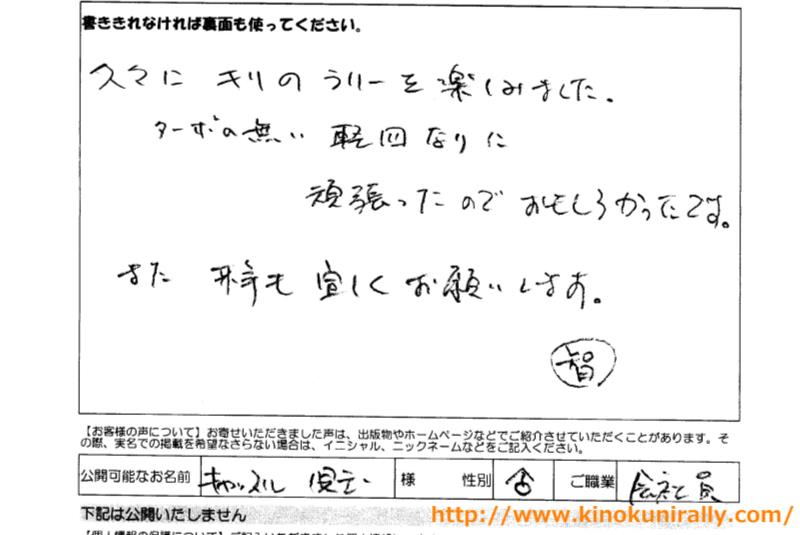 書ききれなければ裏面も使ってください。
久々に キリの ラリーを 楽しみました。
ターボの無い 軽四なりに
頑張ったので おもしろかったです。
また 来年も 宜しく お願いします。
智
【お客様の声について】お寄せいただきました声は、出版物やホームページなどでご紹介させていただくことがあります。そ
の際、実名での掲載を希望なさらない場合は、イニシャル、ニックネームなどをご記入ください。
公開可能なお名前 キャッスル 様 性別 ご職業 会社員
下記は公開いたしません
http://www.kinokunirally.com/